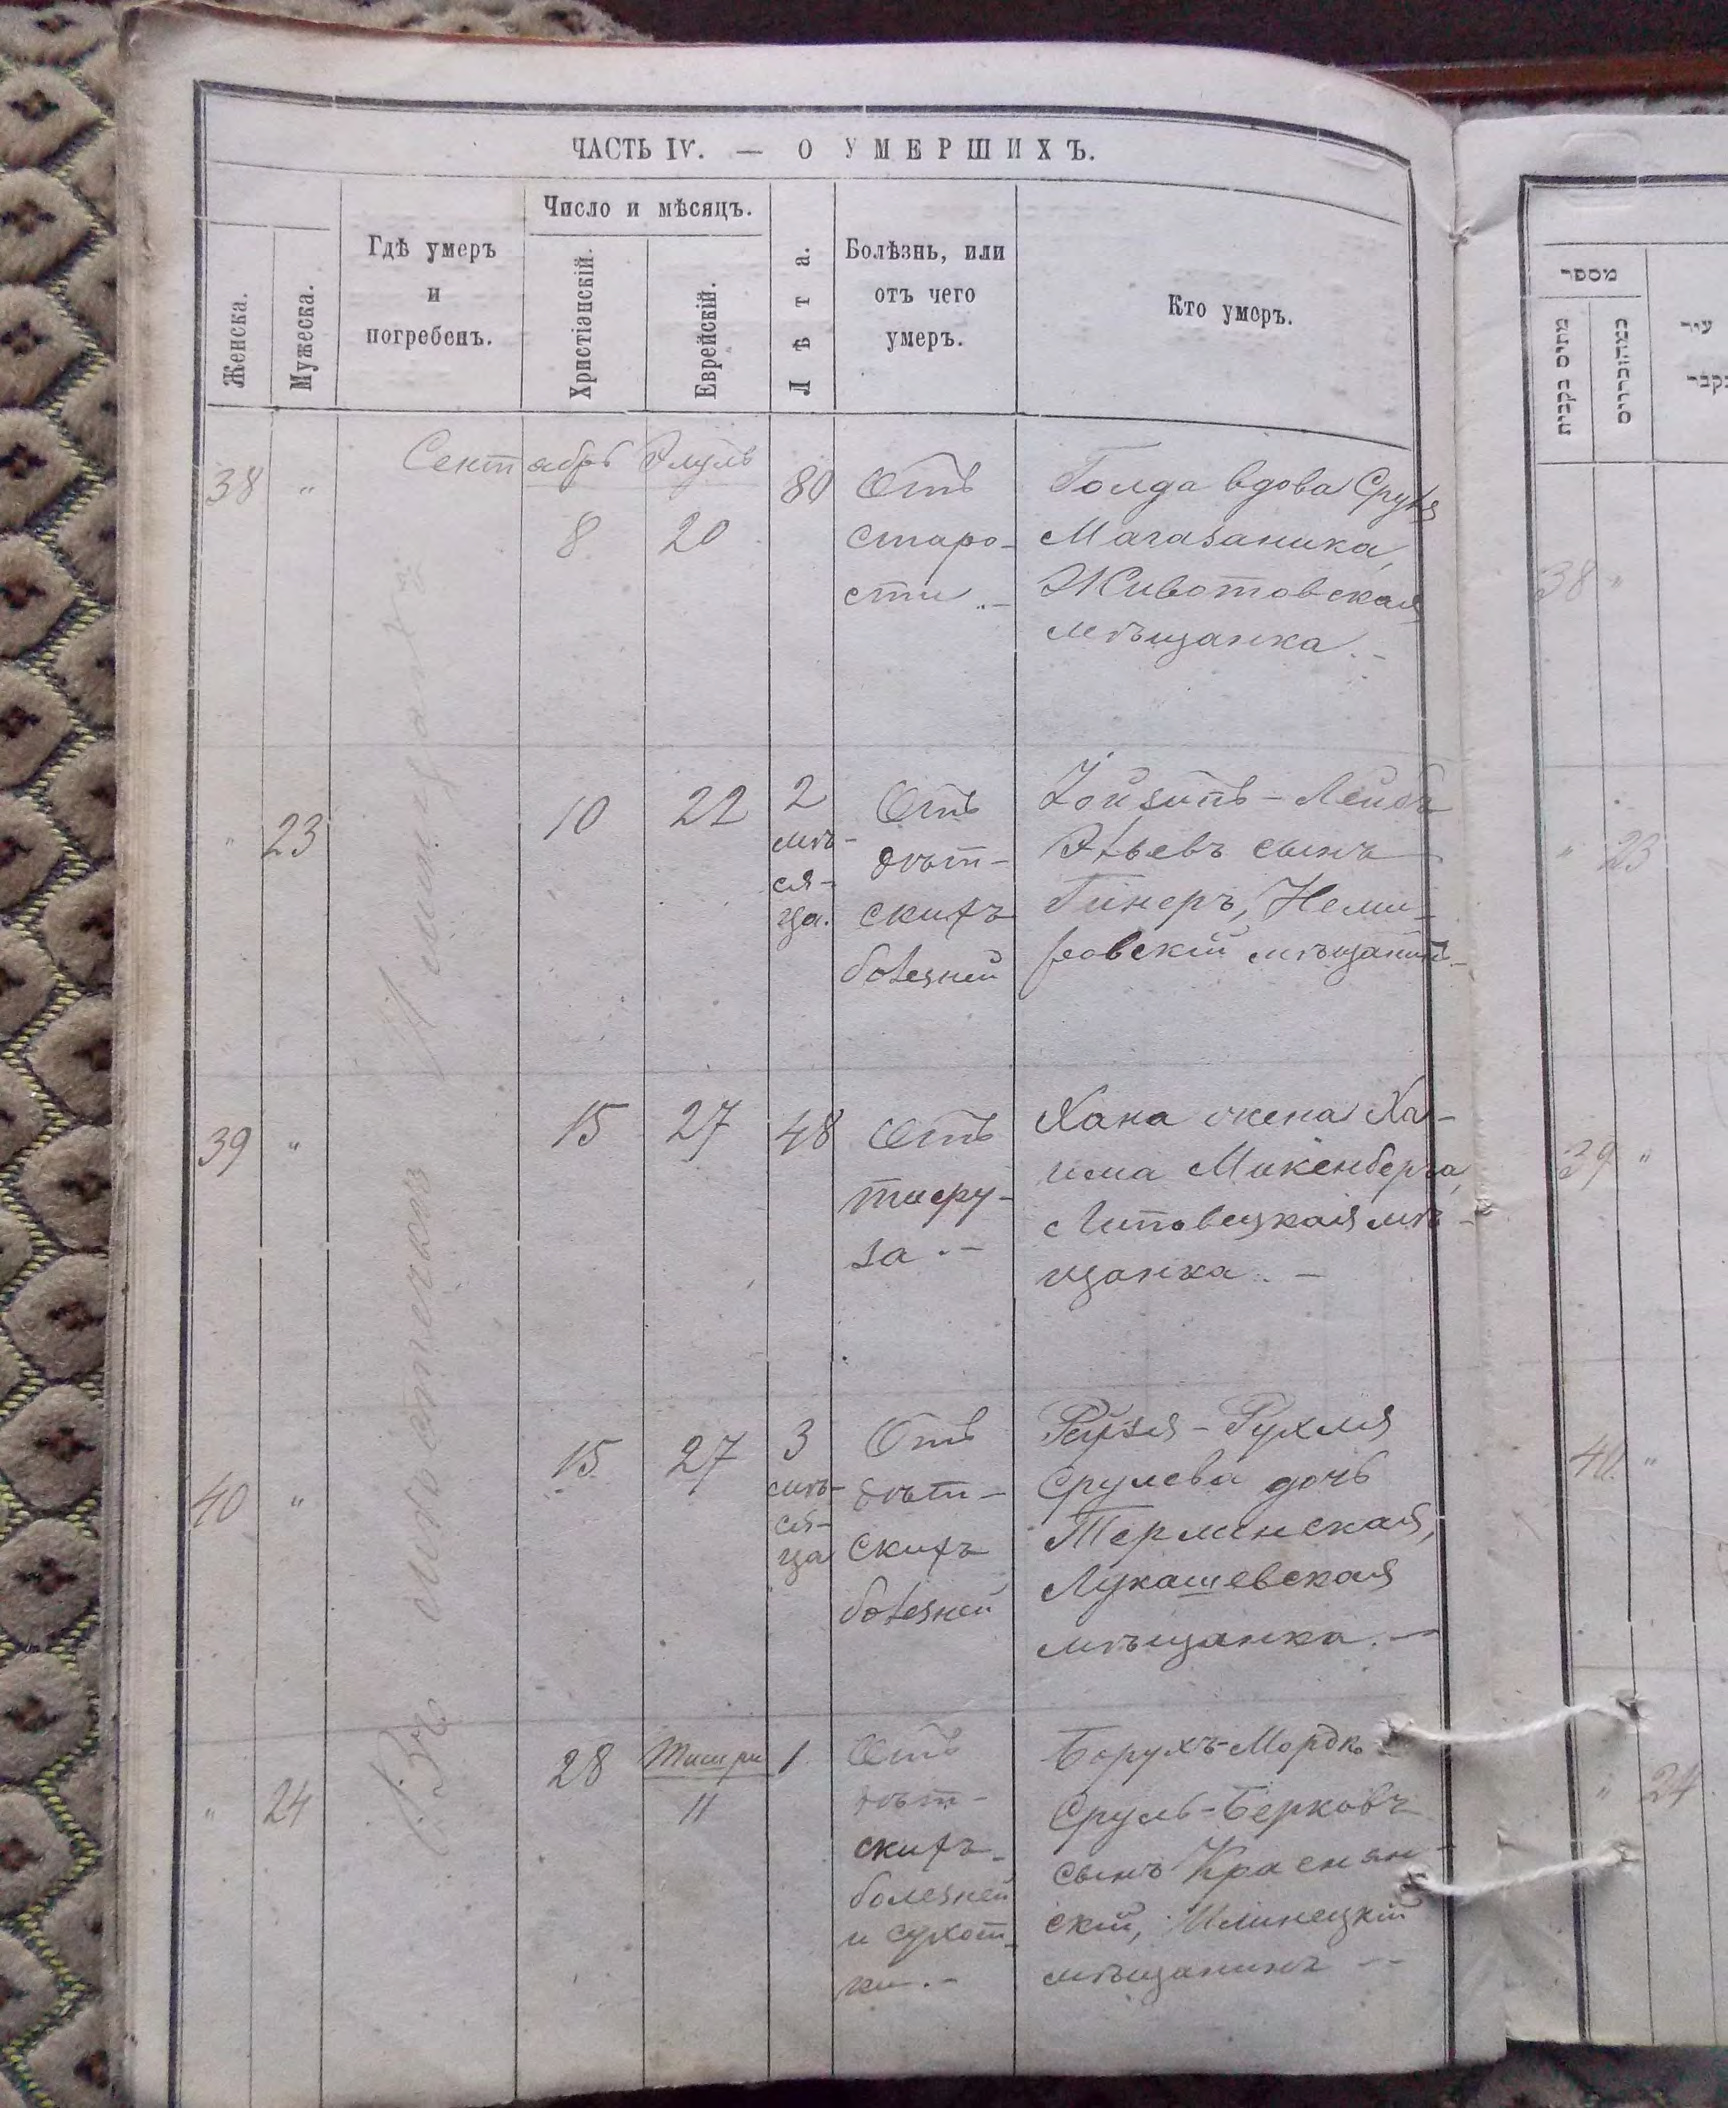 ЧАСТЬ IV. — О УМЕРШИХЪ.
Женска.
Мужеска.
Гдѣ умеръ
и
погребенъ.
Число и мѣсяцъ.
Христіанскій.
Еврейскій.
Лѣта.
Болѣзнь, или
отъ чего
умеръ.
Кто умеръ.
Въ мѣстечкѣ
Сентябрь Элулъ
38 " 8 20 80
Отъ
старо-
сти.-
Голда вдова Сруля
Магазаника,
Животовская
мѣщанка.-
" 23 10 22 2
мѣ-
ся-
ца.
Отъ
дѣт-
скихъ
болезней
Іойзипъ-Лейбъ
сынъ
Гинеръ, Неми-
ровскій мѣщанинъ
39 " 15 27 48
Отъ
тифу-
за.-
Хана жена Ха-
има
Липовецкая мѣ-
щанка.-
40 " 15 27 3
мѣ-
ся-
ца
Отъ
дѣт-
скихъ
болезней
Рейзя-Рухля
Срулева дочь
Терлинская,
Лукашевская
мѣщанка.-
" 24 28 Тишри 11 1
Отъ
дѣт-
скихъ
болезней
и сухот-
ки.-
Борухъ-Мордко
Сруль-Берковъ
сынъ Краснян-
скій, Илинецкій
мѣщанинъ --
מספר
38 "
" 23
39 "
40 "
" 24